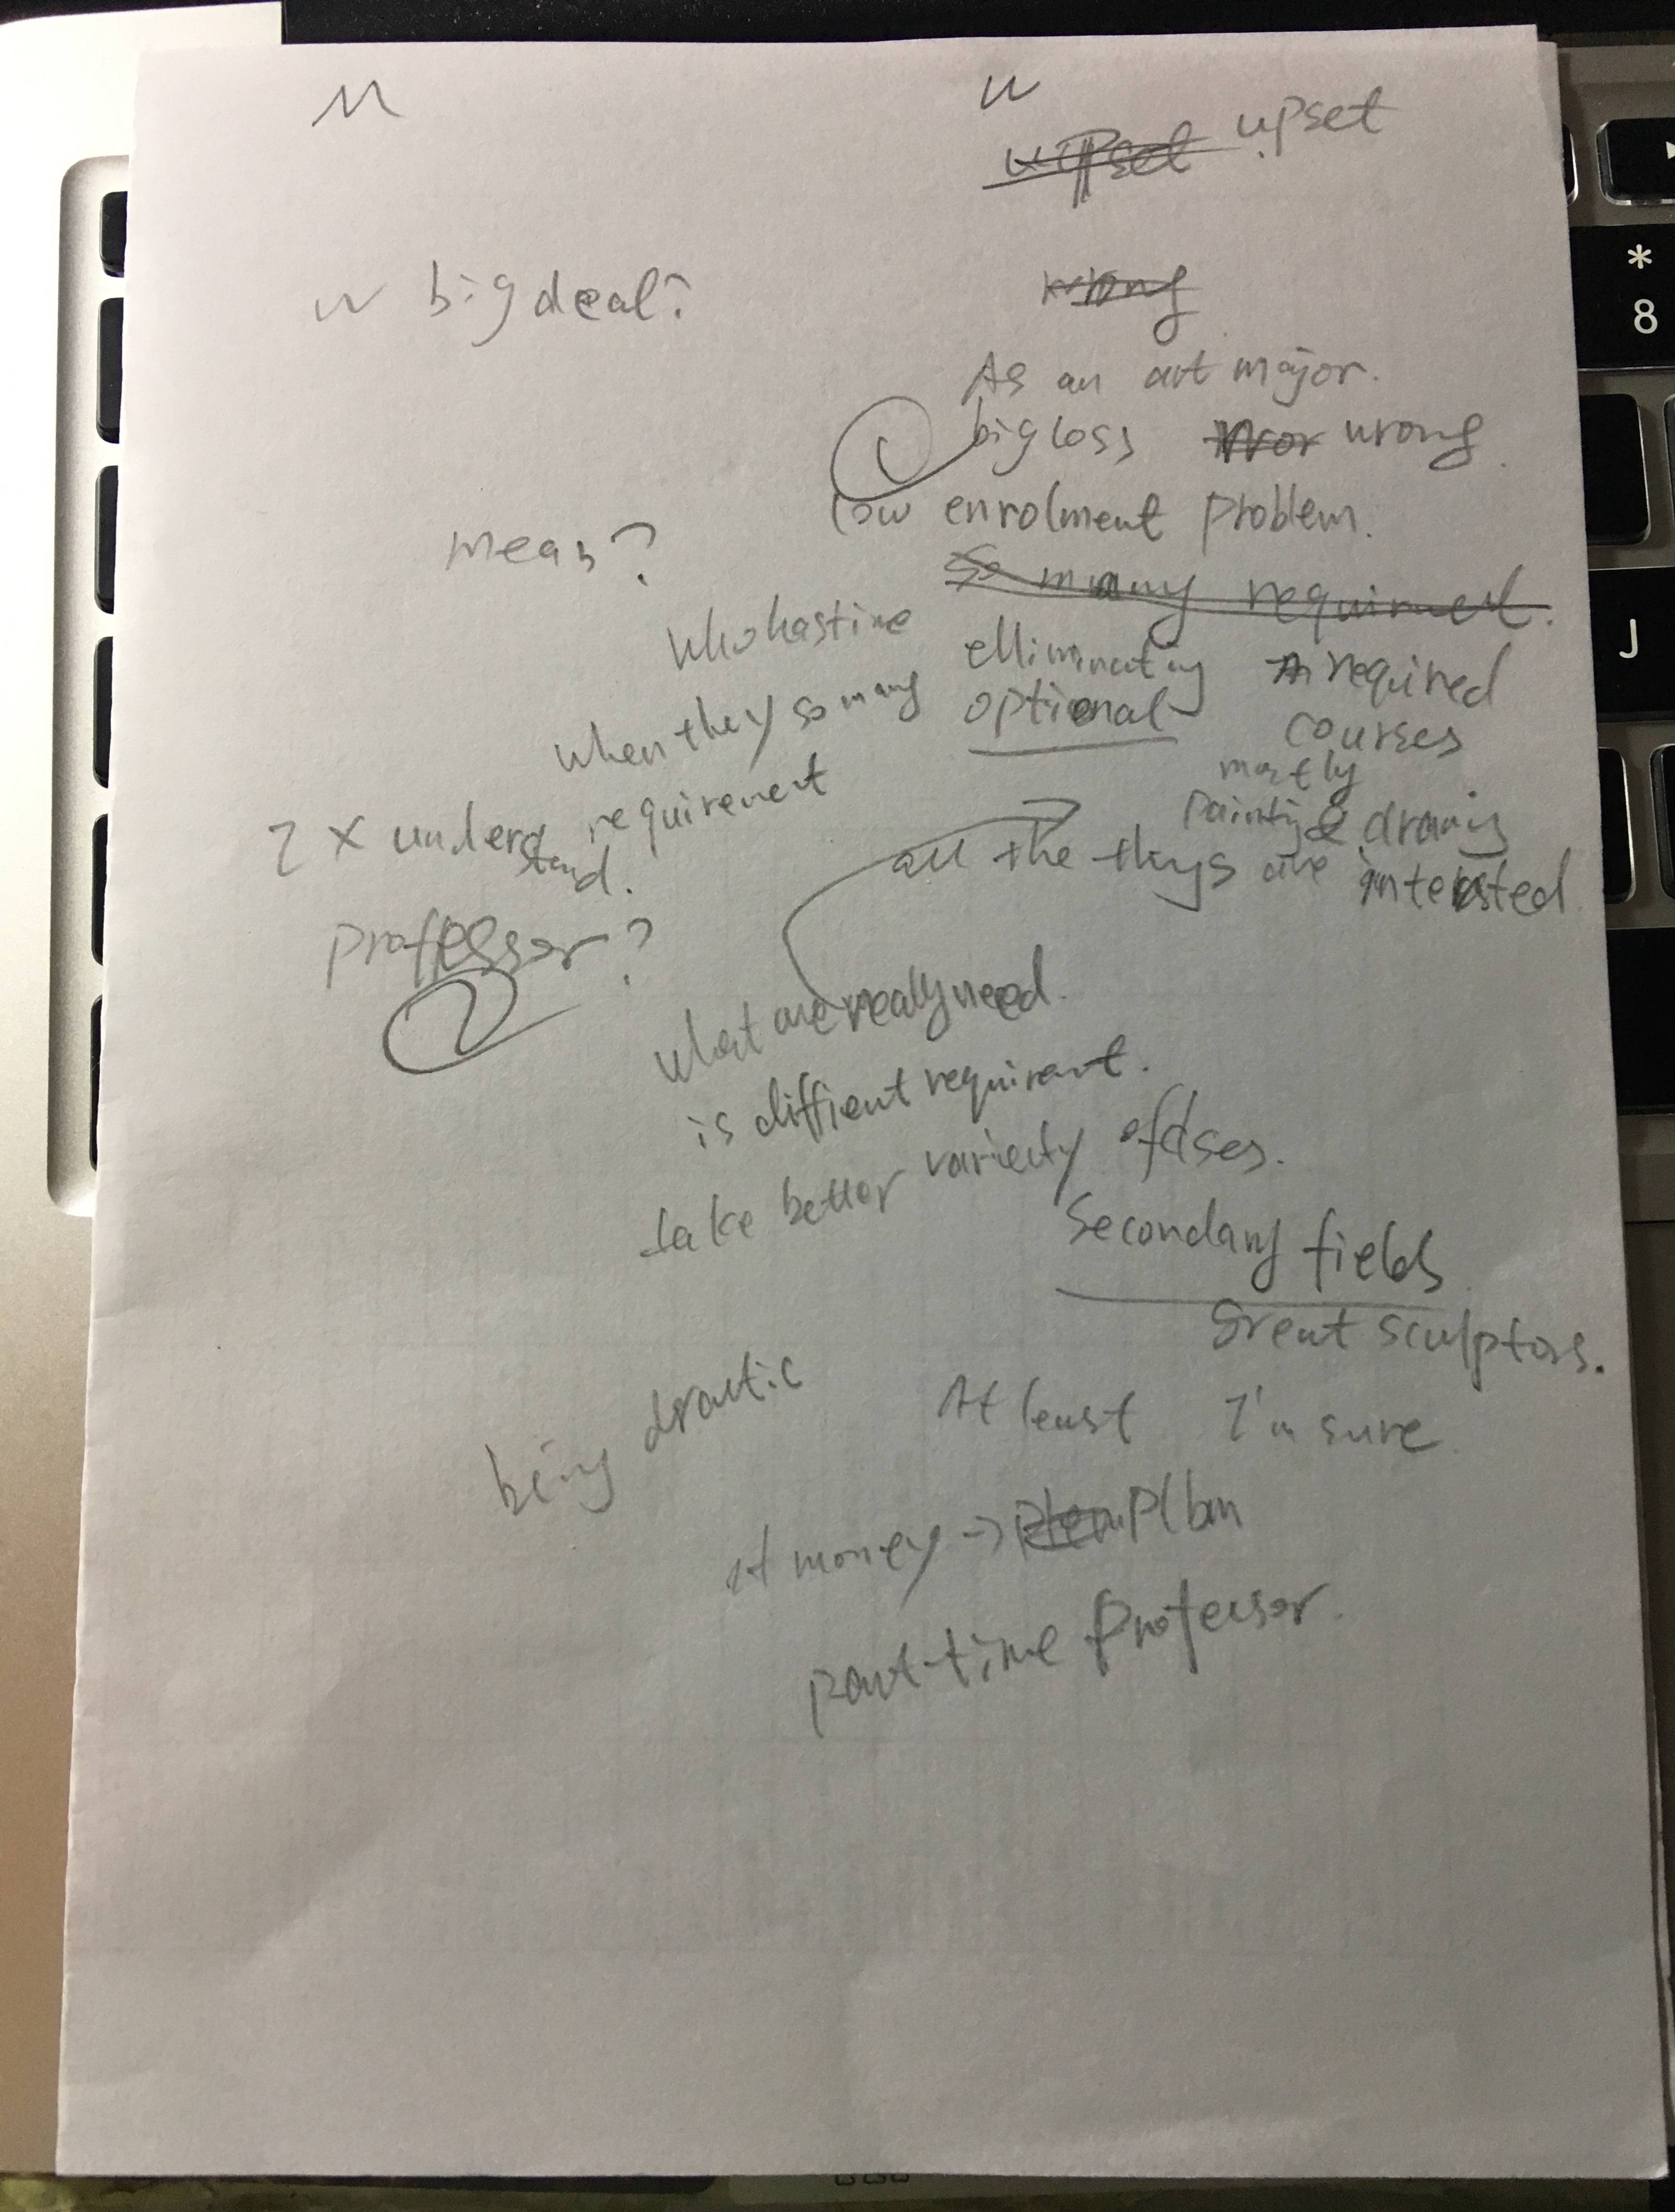 M
W
upset
big deal?
As an art major.
1 big loss wrong
low enrolment problem.
mean?
So many requirment.
who has time
elliminating required
when they so many
optional
courses
requirement
mostly
painting & drawing
I X understand.
all the thigs are interested
professor?
2
what are really need.
is diffient requirent.
take better variety of clses.
Secondary fields
great sculptors.
being drastic
At least I'm sure.
money → plan
part-time professor.
*
8
J